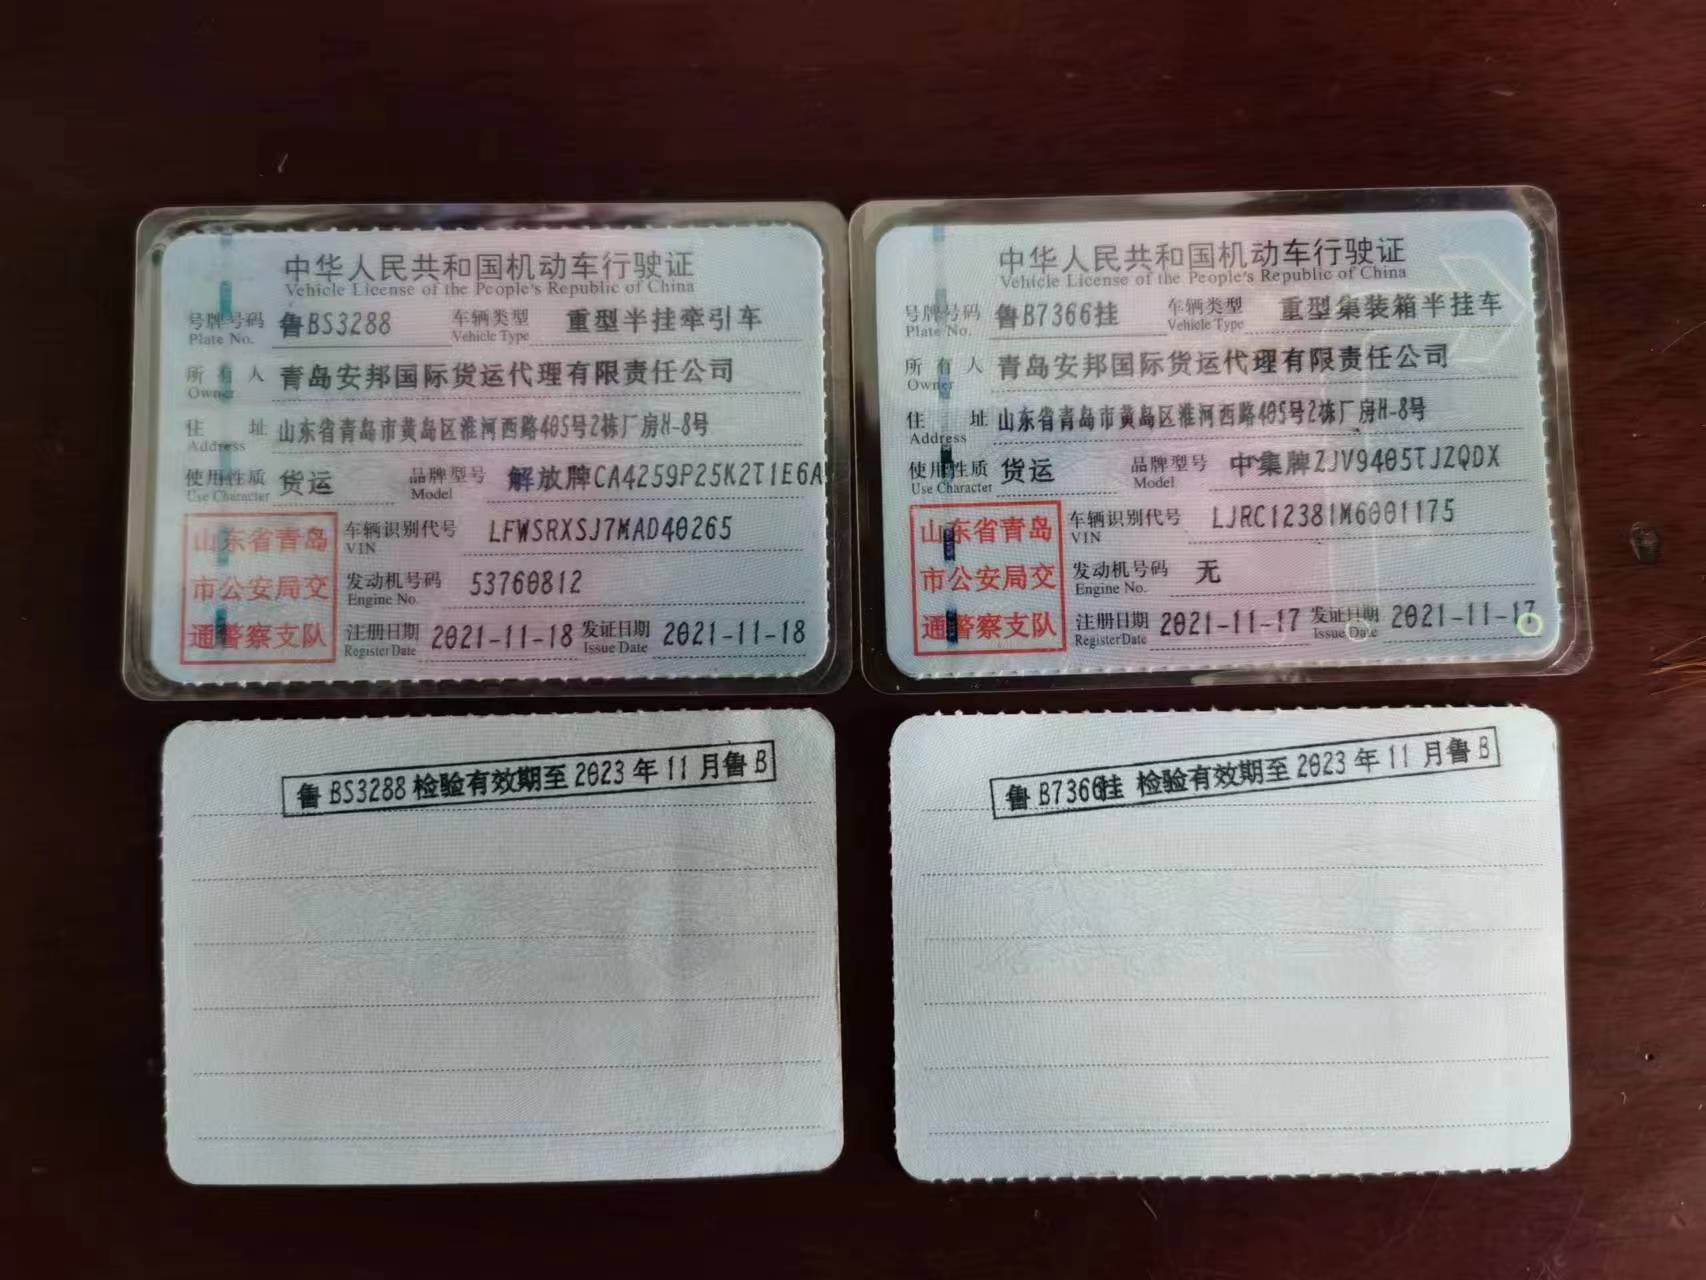 中华人民共和国机动车行驶证
Vehicle License of the People's Republic of China
号牌号码 鲁BS3288 车辆类型 重型半挂牵引车
Plate No. Vehicle Type
所有人 青岛安邦国际货运代理有限责任公司
Owner
住址 山东省青岛市黄岛区淮河西路405号2栋厂房H-8号
Address
使用性质 货运 品牌型号 解放牌CA4259P25K2T1E6A
Use Character Model
山东省青岛市公安局交通警察支队
车辆识别代号 LFWSRXSJ7MAD40265
VIN
发动机号码 53760812
Engine No.
注册日期 2021-11-18 发证日期 2021-11-18
Register Date Issue Date
中华人民共和国机动车行驶证
Vehicle License of the People's Republic of China
号牌号码 鲁B7366挂 车辆类型 重型集装箱半挂车
Plate No. Vehicle Type
所有人 青岛安邦国际货运代理有限责任公司
Owner
住址 山东省青岛市黄岛区淮河西路405号2栋厂房H-8号
Address
使用性质 货运 品牌型号 中集牌ZJV9405TJZQDX
Use Character Model
山东省青岛市公安局交通警察支队
车辆识别代号 LJRC12381M6001175
VIN
发动机号码 无
Engine No.
注册日期 2021-11-17 发证日期 2021-11-17
Register Date Issue Date
鲁BS3288检验有效期至2023年11月鲁B
鲁B7366挂 检验有效期至2023年11月鲁B